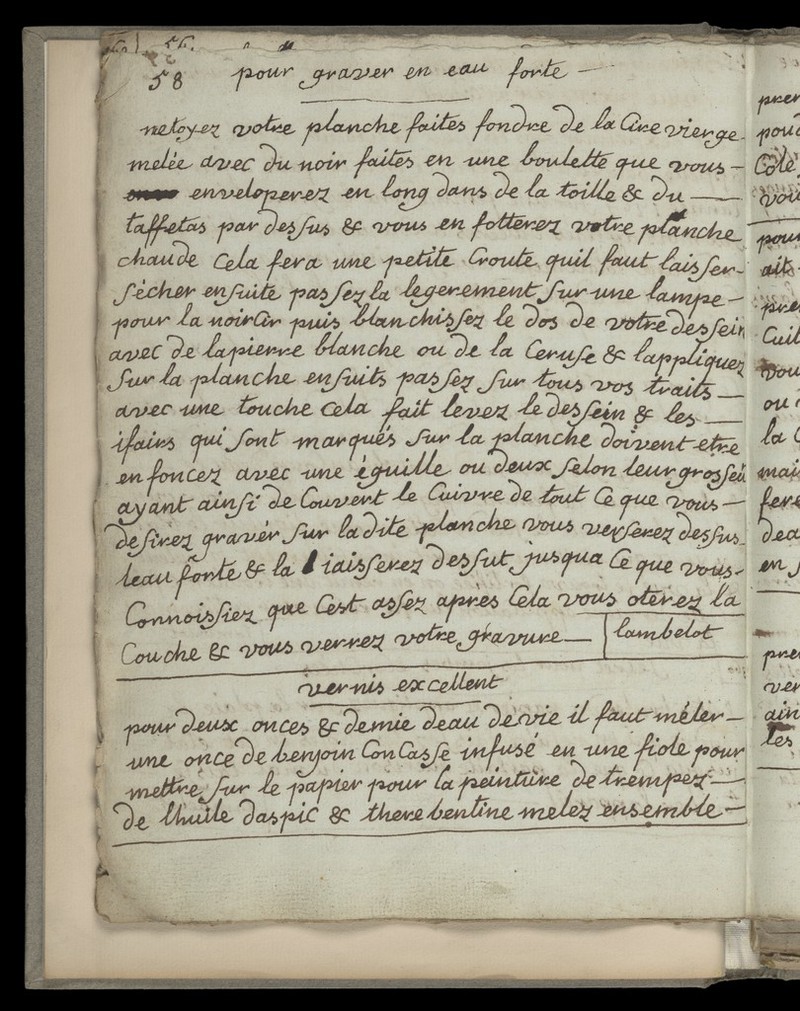 56.
58 pour graver en eau forte —
netoyez votre planche faites fondre de la Cire vierge
melée avec du noir faites en une boulette que vous —
enveloperez en long dans de la toille & du —
taffetas par dessus & vous en fotterez votre planche
chaude Cela fera une petite Croute quil faut laisser-
sécher ensuite passez la legerement sur une lampe —
pour la noirCir puis blanchissez le dos de votre dessein
avec de la pierre blanche ou de la Ceruse & lappliquez
sur la planche ensuits passez sur tous vos traits —
avec une touche Cela fait levez le dessein & les —
ifairs qui sont marqués sur la planche doivent etre
enfoncez avec une éguille ou deux selon leur grosseu
ayant ainsi de Couvert le Cuivre de tout Ce que vous —
desirez gravér sur la dite planche vous verserez dessus
leau forte & la iaisserez dessut jusqua Ce que vous-
Connoissiez que Cest assez apres Cela vous oterez la
Couche & vous verrez votre gravure — lambelot
vernis excellent
pour deux onces & demie deau de vie il faut méler —
une once de benjoin ConCasse infusé en une fiole pour
mettre sur le papier pour la peinture de trempez —
de lhuile daspic & therebentine melez ensemble —
pren
Cole
pour
ait
pre
Cuit
vou
ou
la
mai
fere
dea
en
pre
ver
ain
les